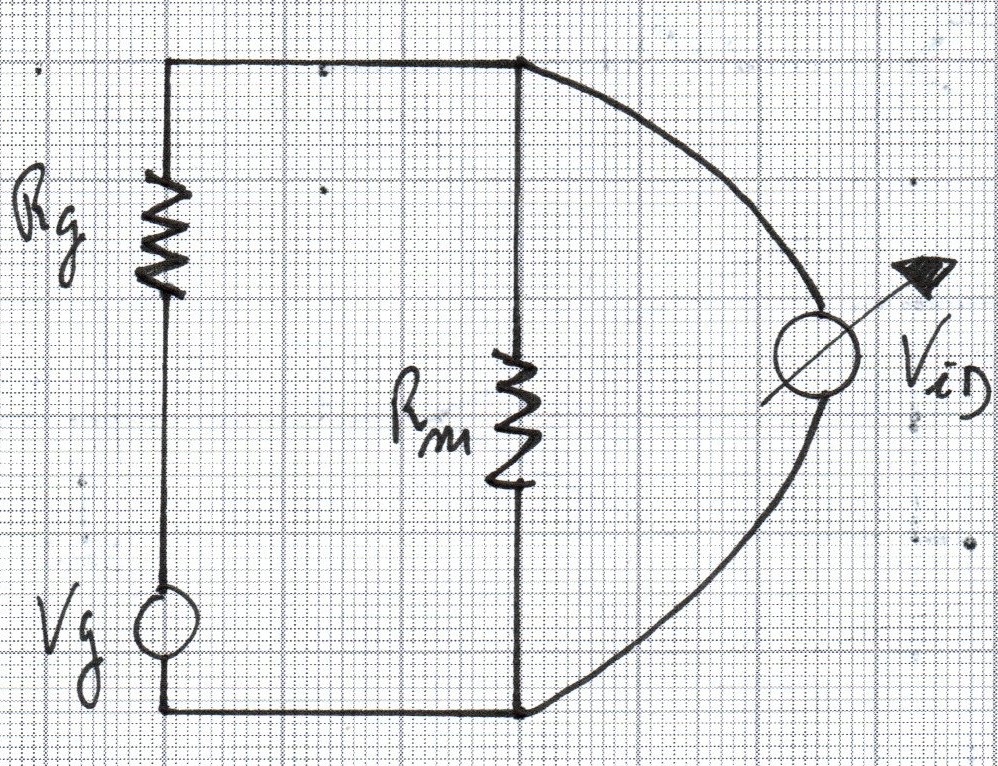 Rg
Rm
ViD
Vg